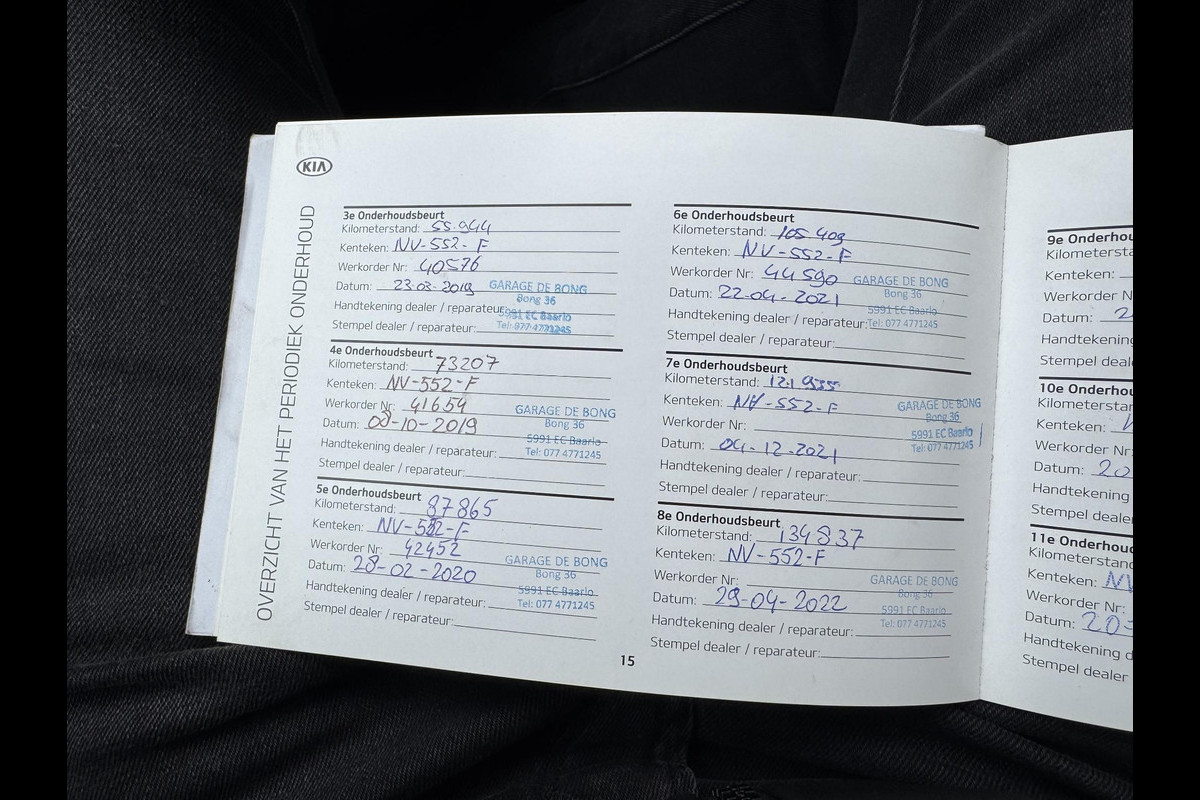 KIA
OVERZICHT VAN HET PERIODIEK ONDERHOUD
3e Onderhoudsbeurt
Kilometerstand: 55.944
Kenteken: NV-552-F
Werkorder Nr: 40576
Datum: 23-03-2019
Handtekening dealer / reparateur:
Stempel dealer / reparateur:
GARAGE DE BONG
Bong 36
5991 EC Baarlo
Tel: 077 4771245
4e Onderhoudsbeurt
Kilometerstand: 73207
Kenteken: NV-552-F
Werkorder Nr: 41654
Datum: 08-10-2019
Handtekening dealer / reparateur:
Stempel dealer / reparateur:
GARAGE DE BONG
Bong 36
5991 EC Baarlo
Tel: 077 4771245
5e Onderhoudsbeurt
Kilometerstand: 87865
Kenteken: NV-552-F
Werkorder Nr: 42452
Datum: 28-02-2020
Handtekening dealer / reparateur:
Stempel dealer / reparateur:
GARAGE DE BONG
Bong 36
5991 EC Baarlo
Tel: 077 4771245
6e Onderhoudsbeurt
Kilometerstand: 105 403
Kenteken: NV-552-F
Werkorder Nr: 44590
Datum: 22-04-2021
Handtekening dealer / reparateur:
Stempel dealer / reparateur:
GARAGE DE BONG
Bong 36
5991 EC Baarlo
Tel: 077 4771245
7e Onderhoudsbeurt
Kilometerstand: 121 935
Kenteken: NV-552-F
Werkorder Nr:
Datum: 04-12-2021
Handtekening dealer / reparateur:
Stempel dealer / reparateur:
GARAGE DE BONG
Bong 36
5991 EC Baarlo
Tel: 077 4771245
8e Onderhoudsbeurt
Kilometerstand: 134837
Kenteken: NV-552-F
Werkorder Nr:
Datum: 29-04-2022
Handtekening dealer / reparateur:
Stempel dealer / reparateur:
GARAGE DE BONG
Bong 36
5991 EC Baarlo
Tel: 077 4771245
15
9e Onderhou
Kilometersta
Kenteken:
Werkorder N
Datum: 2
Handtekening
Stempel deal
10e Onderhou
Kilometerstan
Kenteken:
Werkorder Nr
Datum: 20
Handtekening
Stempel deale
11e Onderhoud
Kilometerstand
Kenteken: NV
Werkorder Nr:
Datum: 20-
Handtekening d
Stempel dealer